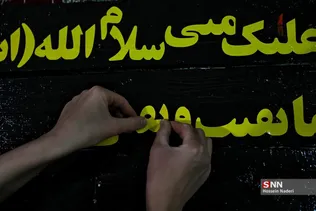 علیک منی سلام الله
ما بقیت و بقی
SNN
Hossein Naderi